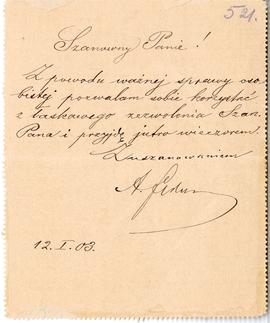 521.
Szanowny Panie!
Z powodu ważnej sprawy oso-
bistej pozwalam sobie korzystać
z łaskawego zezwolenia Szan.
Pana i przyjdę jutro wieczorem.
Z uszanowaniem
A.
12.I.03.